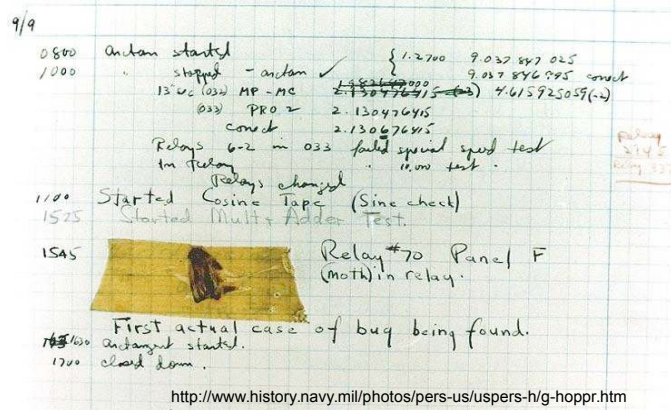 9/9
0800 arctan started { 1.2700 9.037 847 025
1000 " stopped - arctan ✓ 9.037 846 995 correct
13"uc (032) MP - MC 1.982647000 2.130476415 (-3) 4.615925059(-2)
(033) PRO 2 2.130476415
correct 2.130676415
Relays 6-2 in 033 failed special speed test
In Relay " 10.000 test .
Relays changed
1100 Started Cosine Tape (Sine check)
1525 Started Mult + Adder Test.
1545 Relay #70 Panel F
(moth) in relay.
First actual case of bug being found.
1630 arctangent started.
1700 closed down .
http://www.history.navy.mil/photos/pers-us/uspers-h/g-hoppr.htm